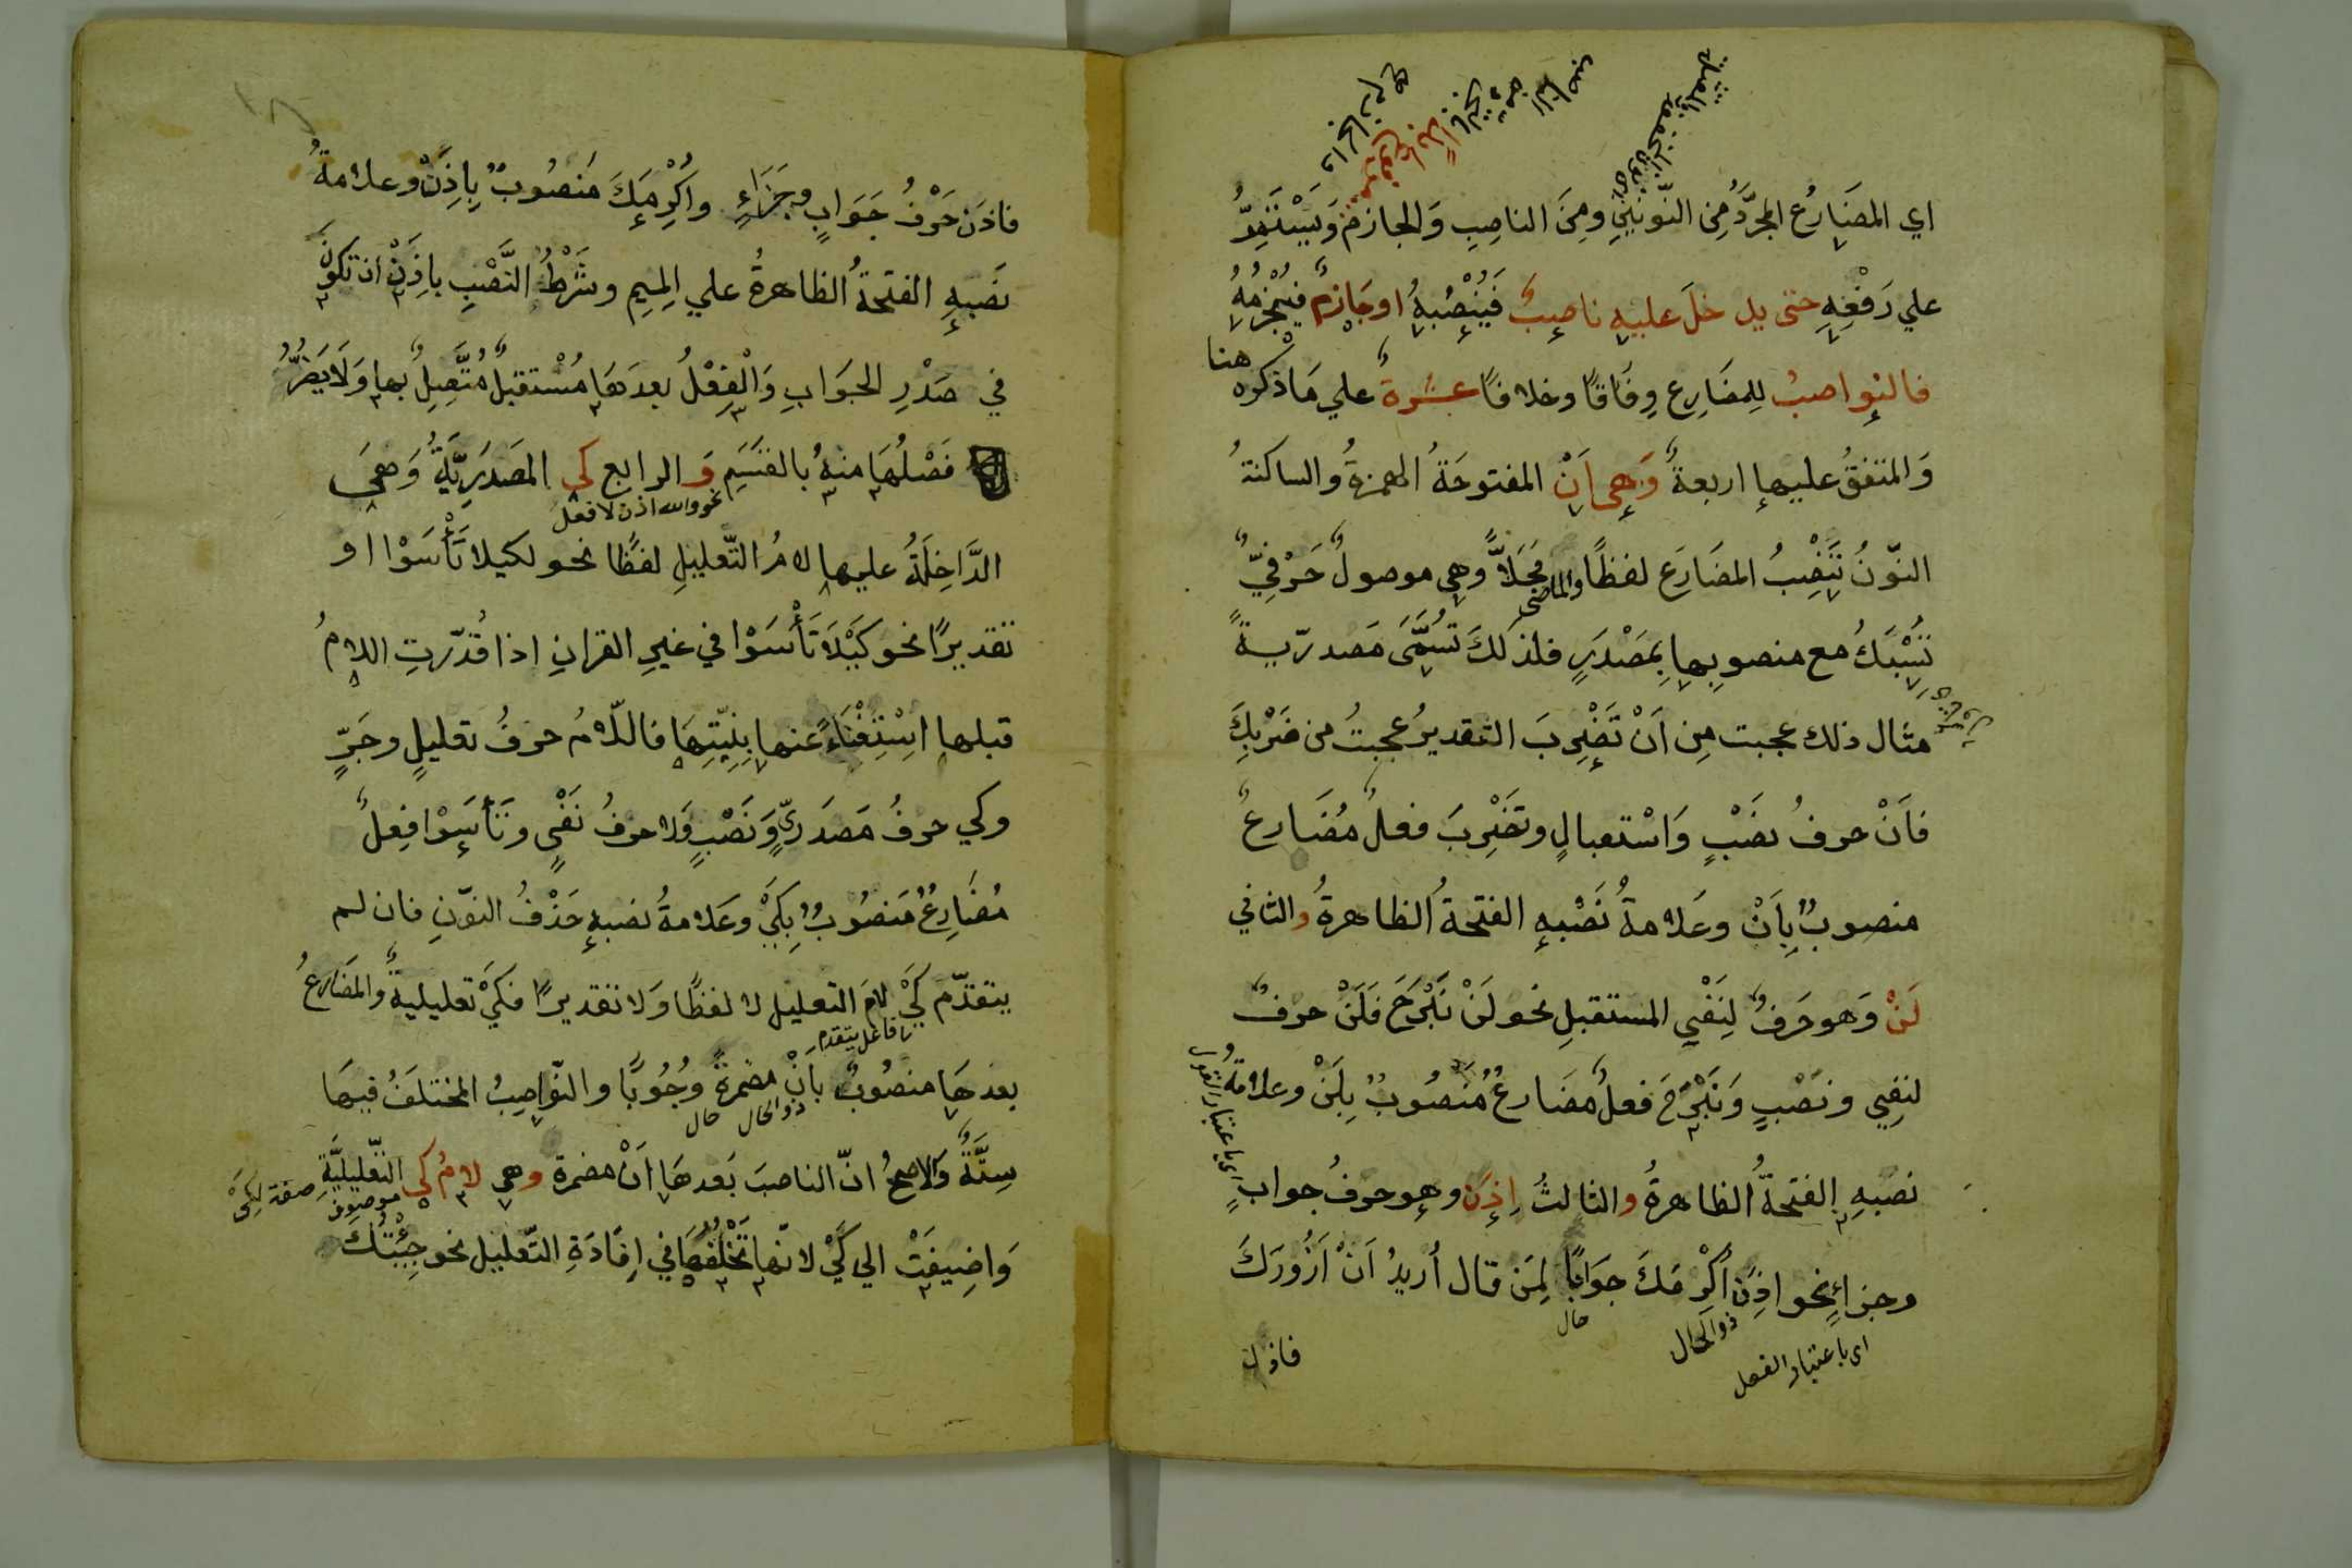 اي المضَارِع المجرَّدُ مِن النّونَينِ ومِنَ الناصِبِ وَالجازم وَيَسْتَمِرُّ
علي رَفْعِهِ حتى يدخلَ عليهِ ناصِبٌ فَيُنْصِبُهُ اوجَازِمٌ فيُجْزِمُهُ
فالنواصبُ لِلمضَارِع وِفَاقًا وخلافًا عشرةٌ علي مَا ذكره هنا
وَالمتفقُ عليها اربعةٌ وَهِي اَنْ المفتوحَةُ الهمزةُ والساكنةُ
النّونُ تَنْصِبُ المضَارَعَ لفظًا والماضي مَحَلاًّ وهي موصولٌ حَرْفِيٌّ
تُسْبَكُ مع منصوبِها بِمَصْدَرٍ فلذلكَ تسُمَّىَ مَصدرّيةً
مثال ذلك عجبت مِن اَنْ تَضْرِبَ التقديرُ عجبتُ من ضَرْبِكَ
فاَنْ حرفُ نصْبٍ وَاسْتقبالٍ وتضْرِبَ فعلٌ مُضَارعٌ
منصوبٌ بِاَنْ وعَلامةُ نَصْبِهِ الفتحةُ الظاهرةُ والثاني
لَنْ وَهو حَرفٌ لِنَفْيِ المستقبلِ نحو لَنْ نَبْرَحَ فَلَنْ حرفٌ
لنفيٍ ونَصْبٍ وَنَبْرَحَ فعلٌ مُضَارعٌ مَنصُوبٌ بِلَنْ وعلامةُ
نصبِهِ الفتحةُ الظاهرةُ والثالثُ اِذَن وهو حرفُ جوابٍ
وجزاءٍ نحو اذَن اُكْرِمَكَ جوَابًا لِمَن قال اُريدُ اَنْ اَزُورَكَ
حال
ذوالحال
اى باعتبار الفعل
فاذن
فاذَن حَرْفُ جَوَابٍ وجَزَاءٍ واُكْرِمَكَ مَنصُوبٌ بِاِذَنْ وعلامةُ
نصَبِهِ الفتحةُ الظاهرةُ علي المِيمِ وشَرْطُ النَّصْبِ باِذَنْ ان تكونَ
في صَدْرِ الجَوَابِ وَالْفِعْلُ بعدَهَا مُسْتقبلٌ مُتَّصِلٌ بها وَلَا يَضُرُّ
فَصْلُهَا منهُ بالقسَمِ وَالرابع كى المَصدَرِيَّةُ وَهِيَ
نحو والله اذن لافعل
الدَّاخِلَةُ عليها لامُ التّعليلِ لفظًا نحو لكيلا تَأْسَوْا او
تقديرًا نحو كَيْلَا تَأْسَوْا في غيرِ القرانِ اذا قُدّرتِ اللامُ
قبلها اسْتِغْنَاءً عنها بِنِيّتِهَا فاللّامُ حرفُ تعليلٍ وجَرٍّ
وكي حرفُ مَصدَرىٍّ وَنَصْبٍ وَلا حرفُ نَفْيٍ وتَأسَوْا فِعلٌ
مُضَارِعٌ مَنصُوبٌ بِكَيْ وعَلامةُ نصبهِ حَذْفُ النوّنِ فان لم
يتقدّم كَيْ لامَ التعليل لا لفظًا وَلا تقديرًا فكَيْ تعليليةٌ والمضَارعُ
فاعل يتقدم
بعدهَا منصُوبٌ باَنْ مضمرةً وُجُوبًا والنّواصِبُ المختلَفُ فيهَا
ذوالحال حال
سِتَّةٌ وَالاصحُ انّ الناصبَ بَعدهَا اَنْ مضمرة وهي لامُ كى التّعليليَّةِ
موصوف صفة لكى
وَاضِيفَتْ الي كَيْ لانّها تَخْلُفُهَا في اِفَادَةِ التّعليل نحو جِئْتُكَ